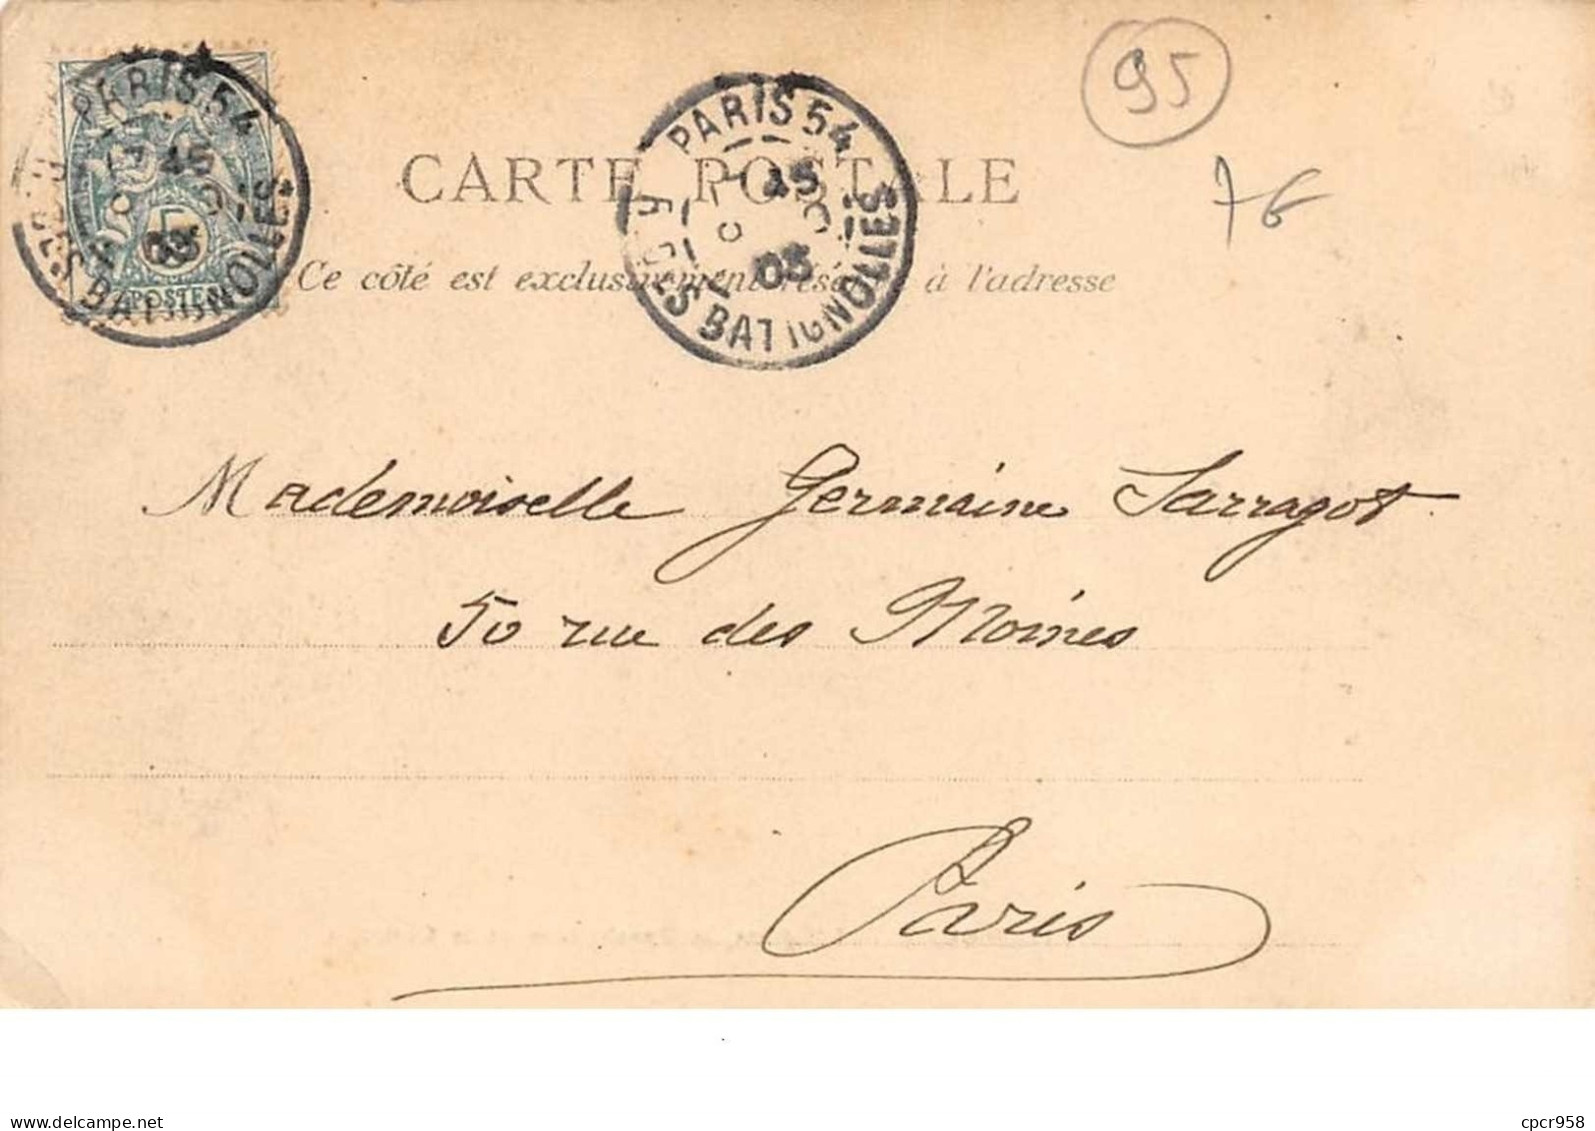 PARIS 54
45
03
R. DES BATIGNOLLES
5
POSTES
PARIS 54
45
03
R. DES BATIGNOLLES
95
76
CARTE POSTALE
Ce côté est exclusivement réservé à l'adresse
Mademoiselle Germaine Sarragot
50 rue des Moines
Paris
cpcr958